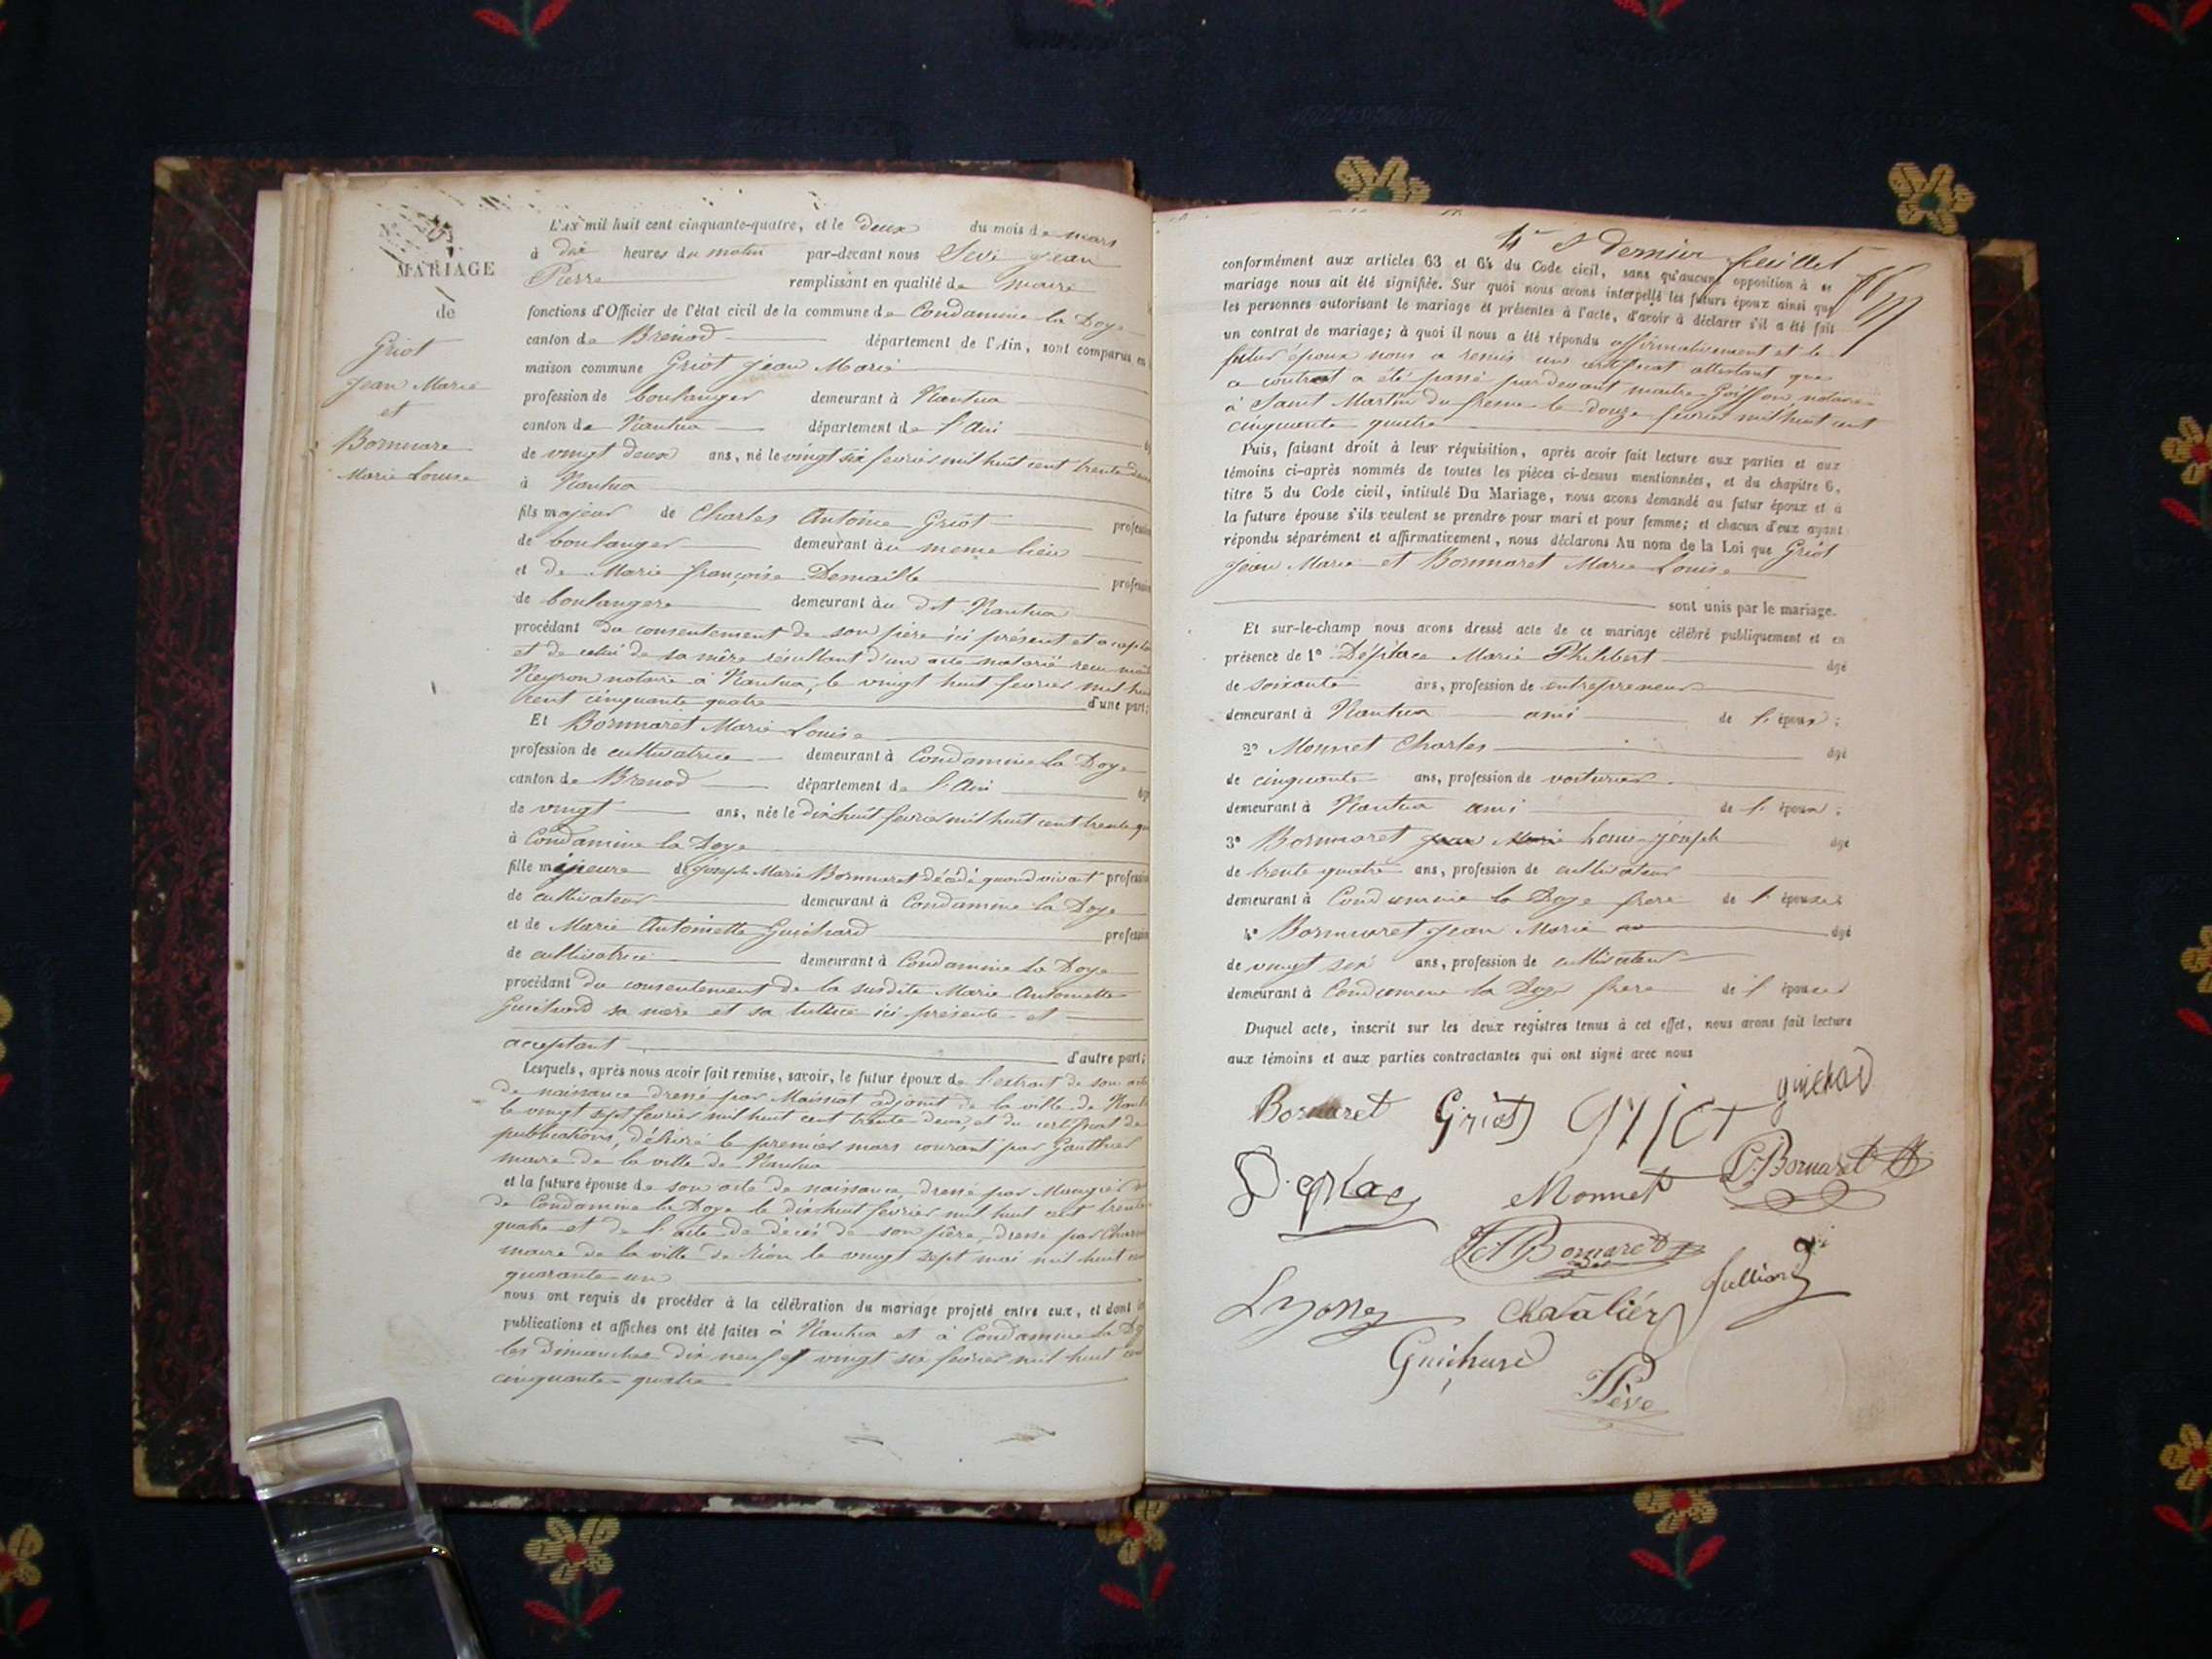 MARIAGE
de
Griot
Jean Marie
et
Bornuare
Marie Louise
L'AN mil huit cent cinquante-quatre, et le deux du mois de mars
à dix heures du matin par-devant nous Sève Jean
Pierre remplissant en qualité de maire
fonctions d'Officier de l'état civil de la commune de Condamine la Doye
canton de Brénod département de l'Ain, sont comparus en
maison commune Griot Jean Marie
profession de boulanger demeurant à Nantua
canton de Nantua département de l'Ain
de vingt deux ans, né le vingt six fevrier mil huit cent trente deux
à Nantua
fils majeur de Charles Antoine Griot profession
de boulanger demeurant au meme lieu
et de Marie françoise Demaille profession
de boulangere demeurant au dit Nantua
procédant du consentement de son père ici présent et
et de celui de sa mère résultant d'un acte notarié recu
Neyron notaire à Nantua, le vingt huit fevrier mil huit
cent cinquante quatre d'une part;
Et Bornuaret Marie Louise
profession de cultivatrice demeurant à Condamine la Doye
canton de Brenod département de l'Ain
de vingt ans, née le dix huit fevrier mil huit cent trente
à Condamine la Doye
fille mineure de Joseph Marie Bornuaret décédé quand vivait profession
de cultivateur demeurant à Condamine la Doye
et de Marie Antoinette Guichard profession
de cultivatrice demeurant à Condamine la Doye
procédant du consentement de la susdite Marie Antoinette
Guichard sa mère et sa tutrice ici présente et
acceptant d'autre part;
Lesquels, après nous avoir fait remise, savoir, le futur époux de l'extrait de son acte
de naissance dressé par Maissiat adjoint de la ville de
le vingt sept fevrier mil huit cent trente deux, et du certificat de
publications, délivré le premier mars courant par Gauthier
maire de la ville de Nantua
et la future épouse de son acte de naissance, dressé par
de Condamine la Doye le dix huit fevrier mil huit cent trente
quatre et de l'acte de décès de son père, dressé par
maire de la ville de le vingt sept mai mil huit
quarante un
nous ont requis de procéder à la célébration du mariage projeté entre eux, et dont les
publications et affiches ont été faites à Nantua et à Condamine la
les dimanches dix neuf et vingt six fevrier mil huit cent
cinquante quatre
5e & dernier feuillet
conformément aux articles 63 et 64 du Code civil, sans qu'aucune opposition à ce
mariage nous ait été signifiée. Sur quoi nous avons interpellé les futurs époux ainsi que
les personnes autorisant le mariage et présentes à l'acte, d'avoir à déclarer s'il a été fait
un contrat de mariage; à quoi il nous a été répondu affirmativement et le
futur époux nous a remis un certificat attestant que
ce contrat a été passé par devant maitre Goiffon notaire
à Saint Martin du fresne le douze fevrier mil huit cent
cinquante quatre
Puis, faisant droit à leur réquisition, après avoir fait lecture aux parties et aux
témoins ci-après nommés de toutes les pièces ci-dessus mentionnées, et du chapitre 6,
titre 5 du Code civil, intitulé Du Mariage, nous avons demandé au futur époux et à
la future épouse s'ils veulent se prendre pour mari et pour femme; et chacun d'eux ayant
répondu séparément et affirmativement, nous déclarons Au nom de la Loi que Griot
Jean Marie et Bornuaret Marie Louise
sont unis par le mariage.
Et sur-le-champ nous avons dressé acte de ce mariage célébré publiquement et en
présence de 1° Déplace Marie Philibert âgé
de soixante ans, profession de entrepreneur
demeurant à Nantua ami de l'époux;
2° Monnet Charles âgé
de cinquante ans, profession de voiturier
demeurant à Nantua ami de l'époux;
3° Bornuaret Jean Marie Louis Joseph âgé
de trente quatre ans, profession de cultivateur
demeurant à Condamine la Doye frere de l'épouse;
4° Bornuaret Jean Marie âgé
de vingt six ans, profession de cultivateur
demeurant à Condamine la Doye frere de l'épouse
Duquel acte, inscrit sur les deux registres tenus à cet effet, nous avons fait lecture
aux témoins et aux parties contractantes qui ont signé avec nous
Bornaret Griot griot guichard
Déplace Monnet Bornaret
Bornaret
Julliard
Chavalier
Guichard
Sève